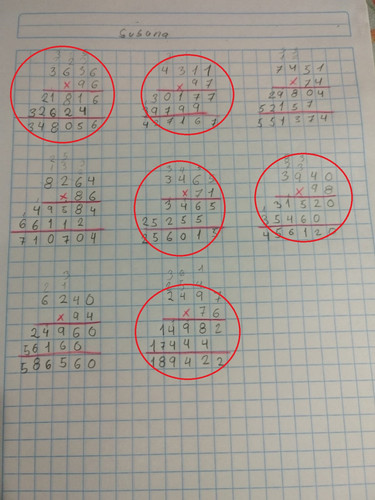 3636
×96
21816
32624
348056
4311
×97
30177
39799
7451
×74
29804
52157
551374
8264
×86
49584
66112
710704
3465
×71
3465
25255
256015
3940
×98
31520
35460
456120
6240
×94
24960
56160
586560
2497
×76
14982
17444
189422